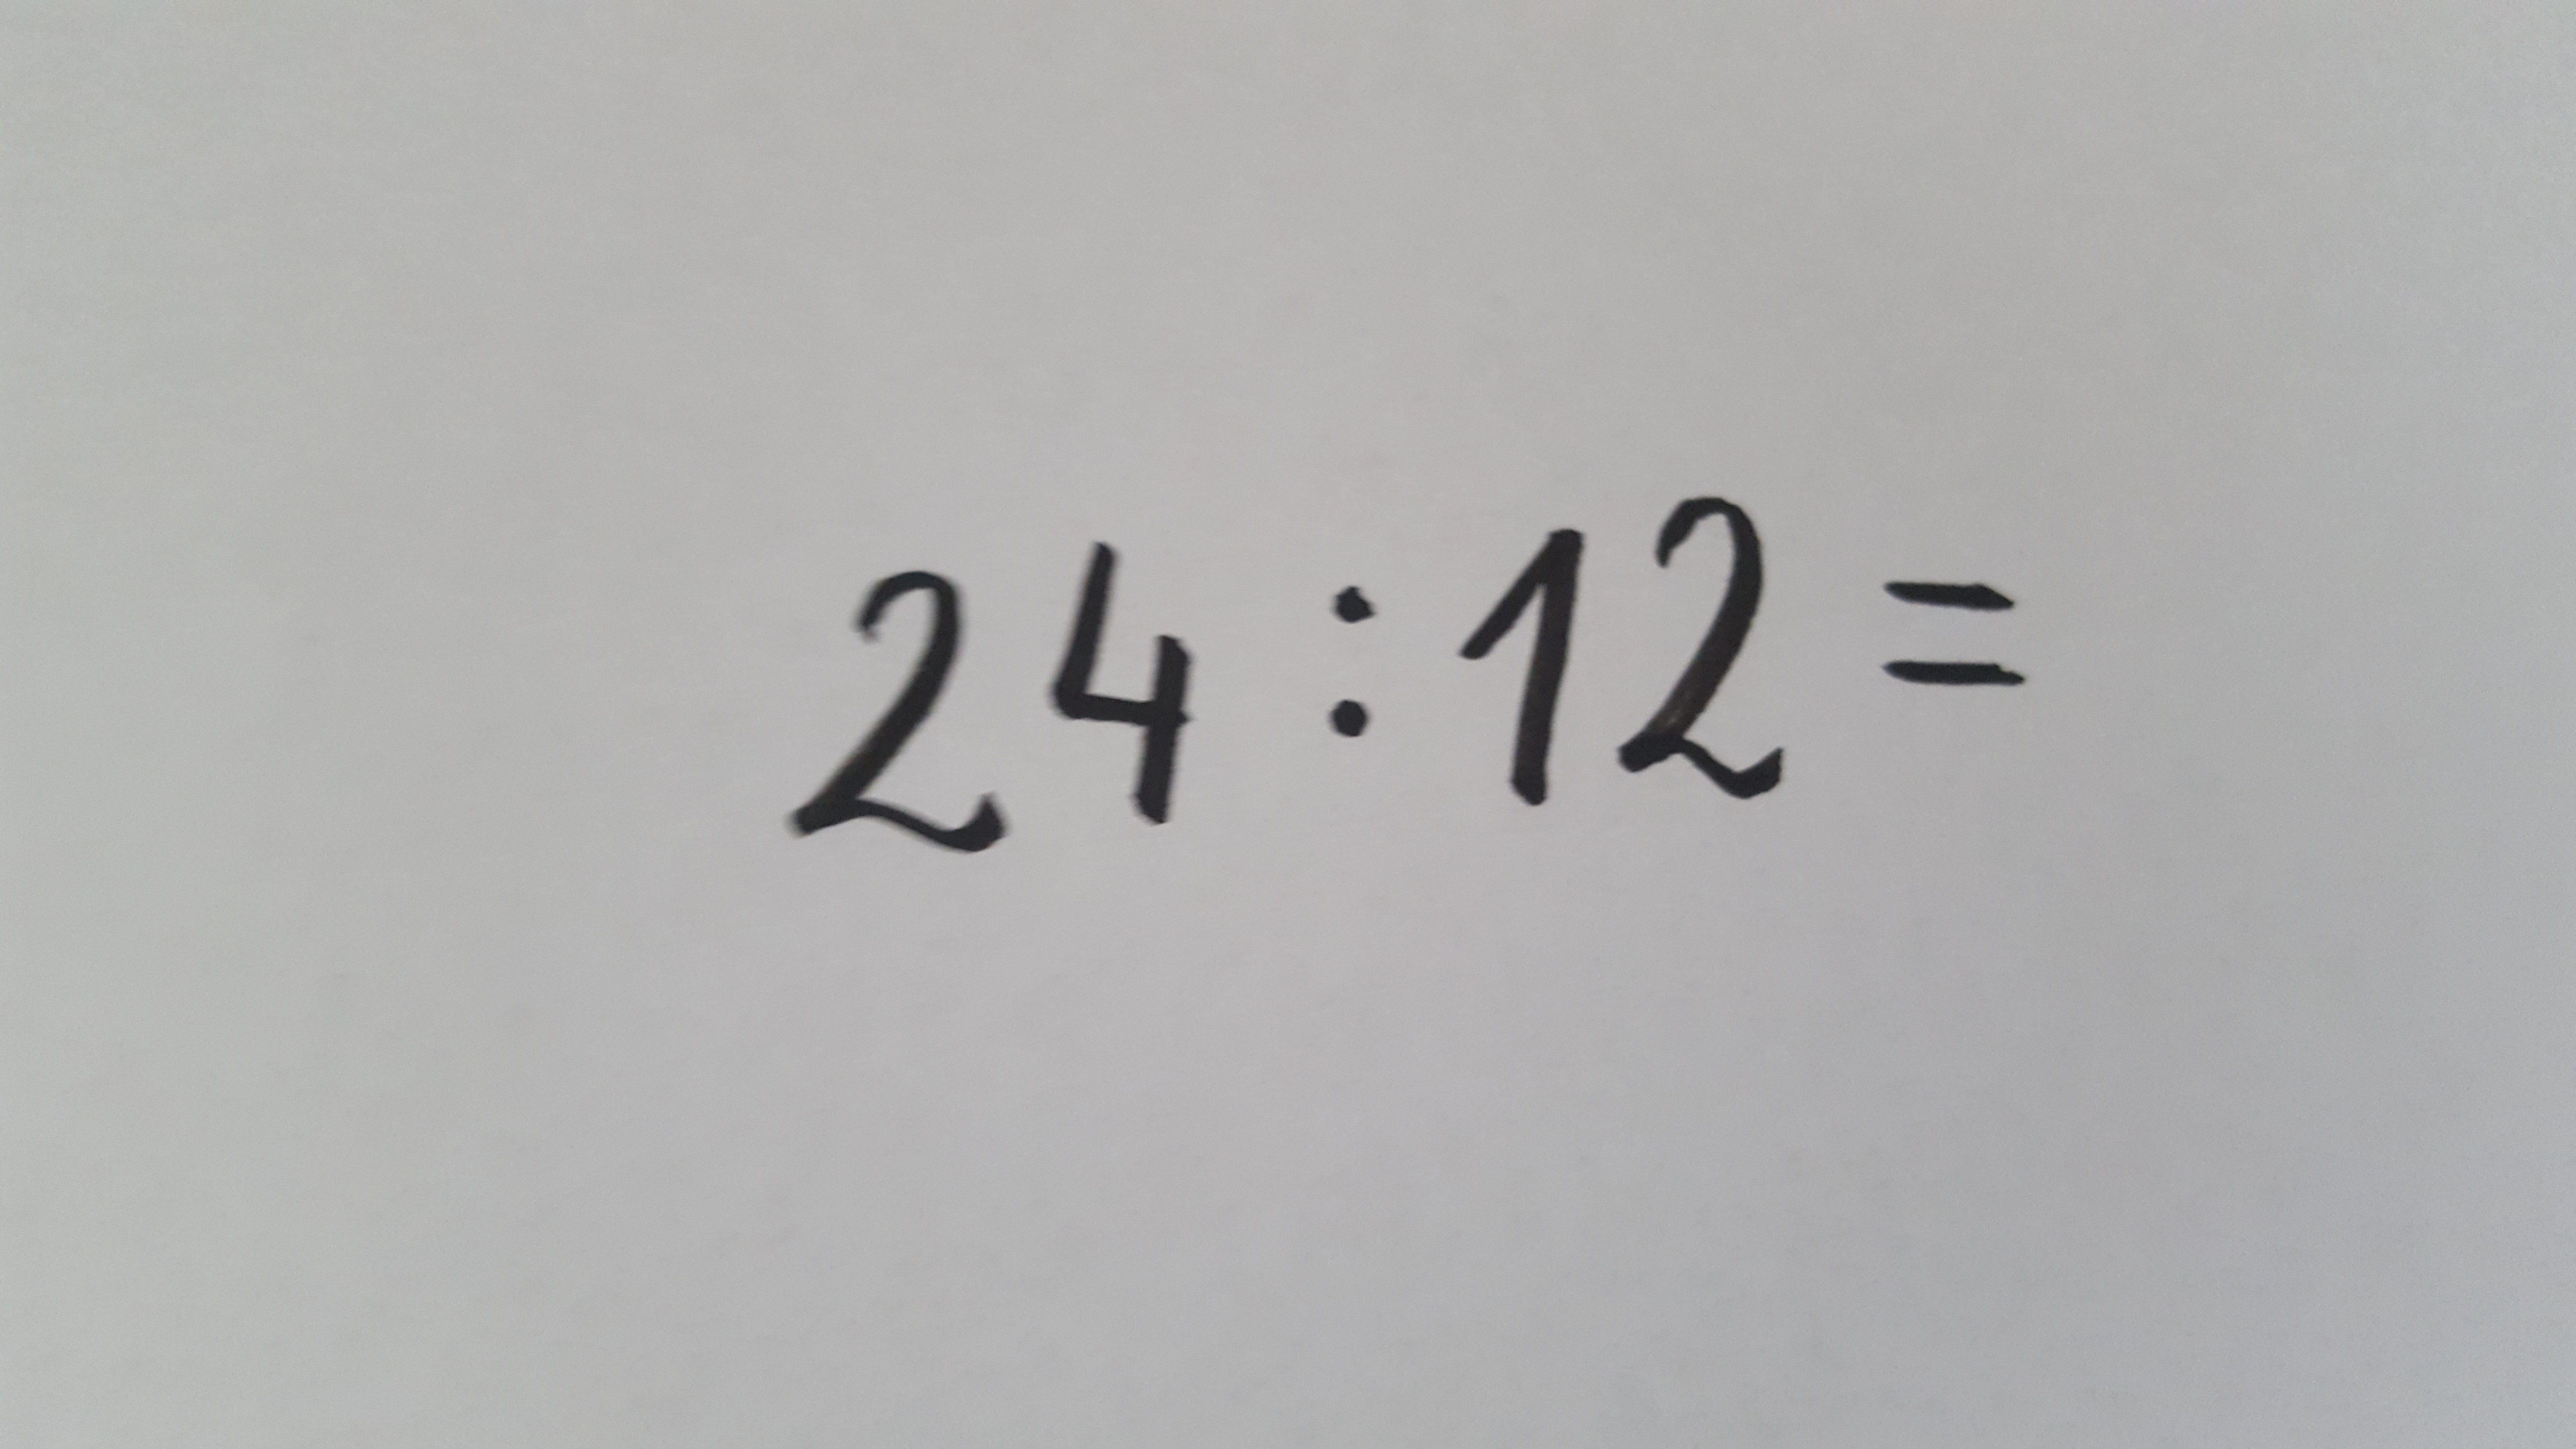 24 : 12 =